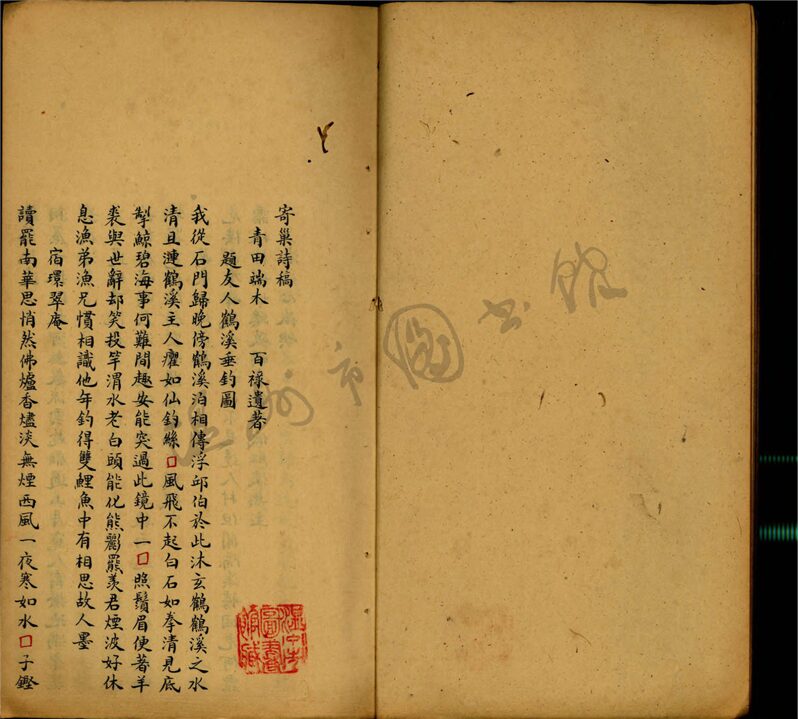 寄巢詩稿
青田端木 百祿遺著
題友人鶴溪垂釣圖
我從石門歸晚傍鶴溪泊相傳浮邱伯於此沐玄鶴鶴溪之水
清且漣鶴溪主人癯如仙釣絲□風飛不起白石如拳清見底
掣鯨碧海事何難間趣安能突過此鏡中一□照鬚眉便著羊
裘與世辭却笑投竿渭水老白頭能化熊羆羨君煙波好休
息漁弟漁兄慣相識他年釣得雙鯉魚中有相思故人墨
宿環翠庵
讀罷南華思悄然佛爐香燼淡無煙西風一夜寒如水□子鏗
市圖書館